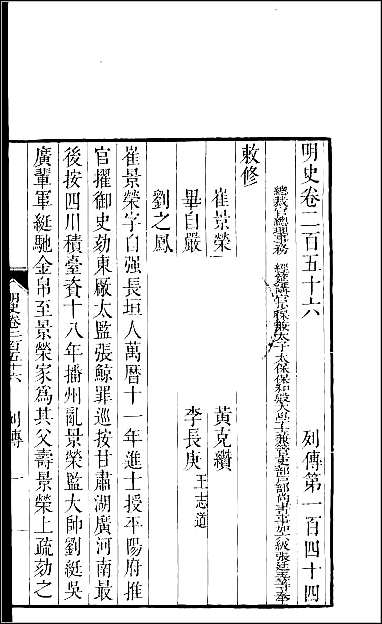 明史卷二百五十六　列傳第一百四十四
總裁官總理事務　經筵講官少保兼太子太保保和殿大學士兼管吏部戶部尚書事加六級張廷玉等奉
敕修
崔景榮　黃克纘
畢自嚴　李長庚 王志道
劉之鳳
崔景榮字自强長垣人萬曆十一年進士授平陽府推
官擢御史劾東廠太監張鯨罪巡按甘肅湖廣河南最
後按四川積臺資十八年播州亂景榮監大帥劉綎吳
廣輩軍綎馳金帛至景榮家爲其父壽景榮上疏劾之
明史卷二百五十六　列傳　一